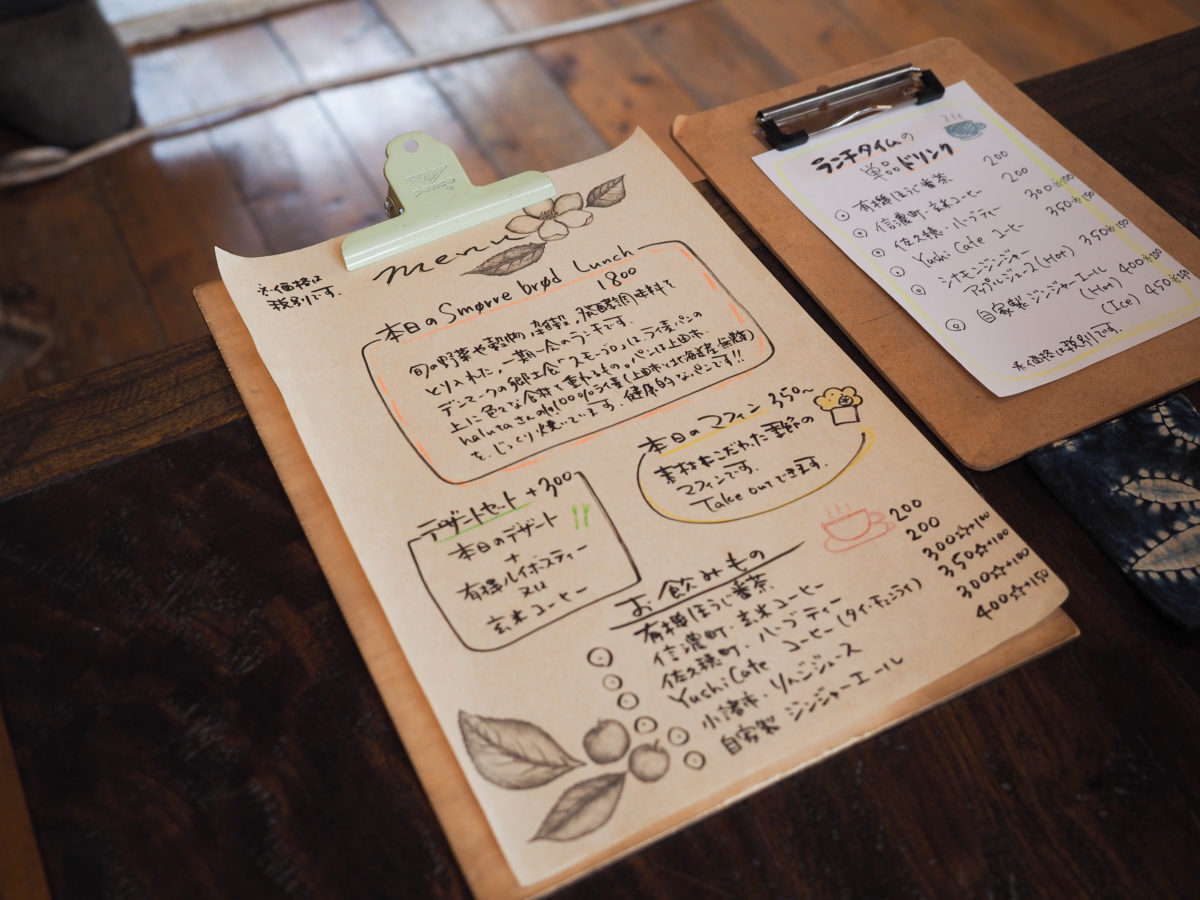 ※価格は
税別です。
menu
本日のSmørre brød Lunch
1800
旬の野菜や穀物、雑穀、発酵調味料を
とり入れた、一期一会のランチです。
デンマークの郷土食「スモーブロ」は、ライ麦パンの
上に色々な食材を重ねるもの。パンは上田市
halutaさんの100%ライ麦(上田市又は北海道産・無農薬)
を、じっくり焼いています。健康的なパンです!!
本日のマフィン 350〜
素材にこだわった季節の
マフィンです。
Take outできます。
デザートセット +300
本日のデザート
+
有機ルイボスティー
又は
玄米コーヒー
お飲みもの
有機ほうじ番茶 200
信濃町・玄米コーヒー 200
佐久穂町・ハーブティー 300☆+100
Yushi Cafe コーヒー(タイ・チェンライ) 350☆+100
小諸市・りんごジュース 300☆+100
自家製 ジンジャーエール 400☆+150
ランチタイムの
単品ドリンク
有機ほうじ番茶 200
信濃町・玄米コーヒー 200
佐久穂・ハーブティー 300※100
Yushi Cafe コーヒー 350※100
シナモンジンジャー
アップルジュース(Hot) 350
自家製ジンジャーエール
(Hot) 400
(Ice) 450
※価格は税別です。